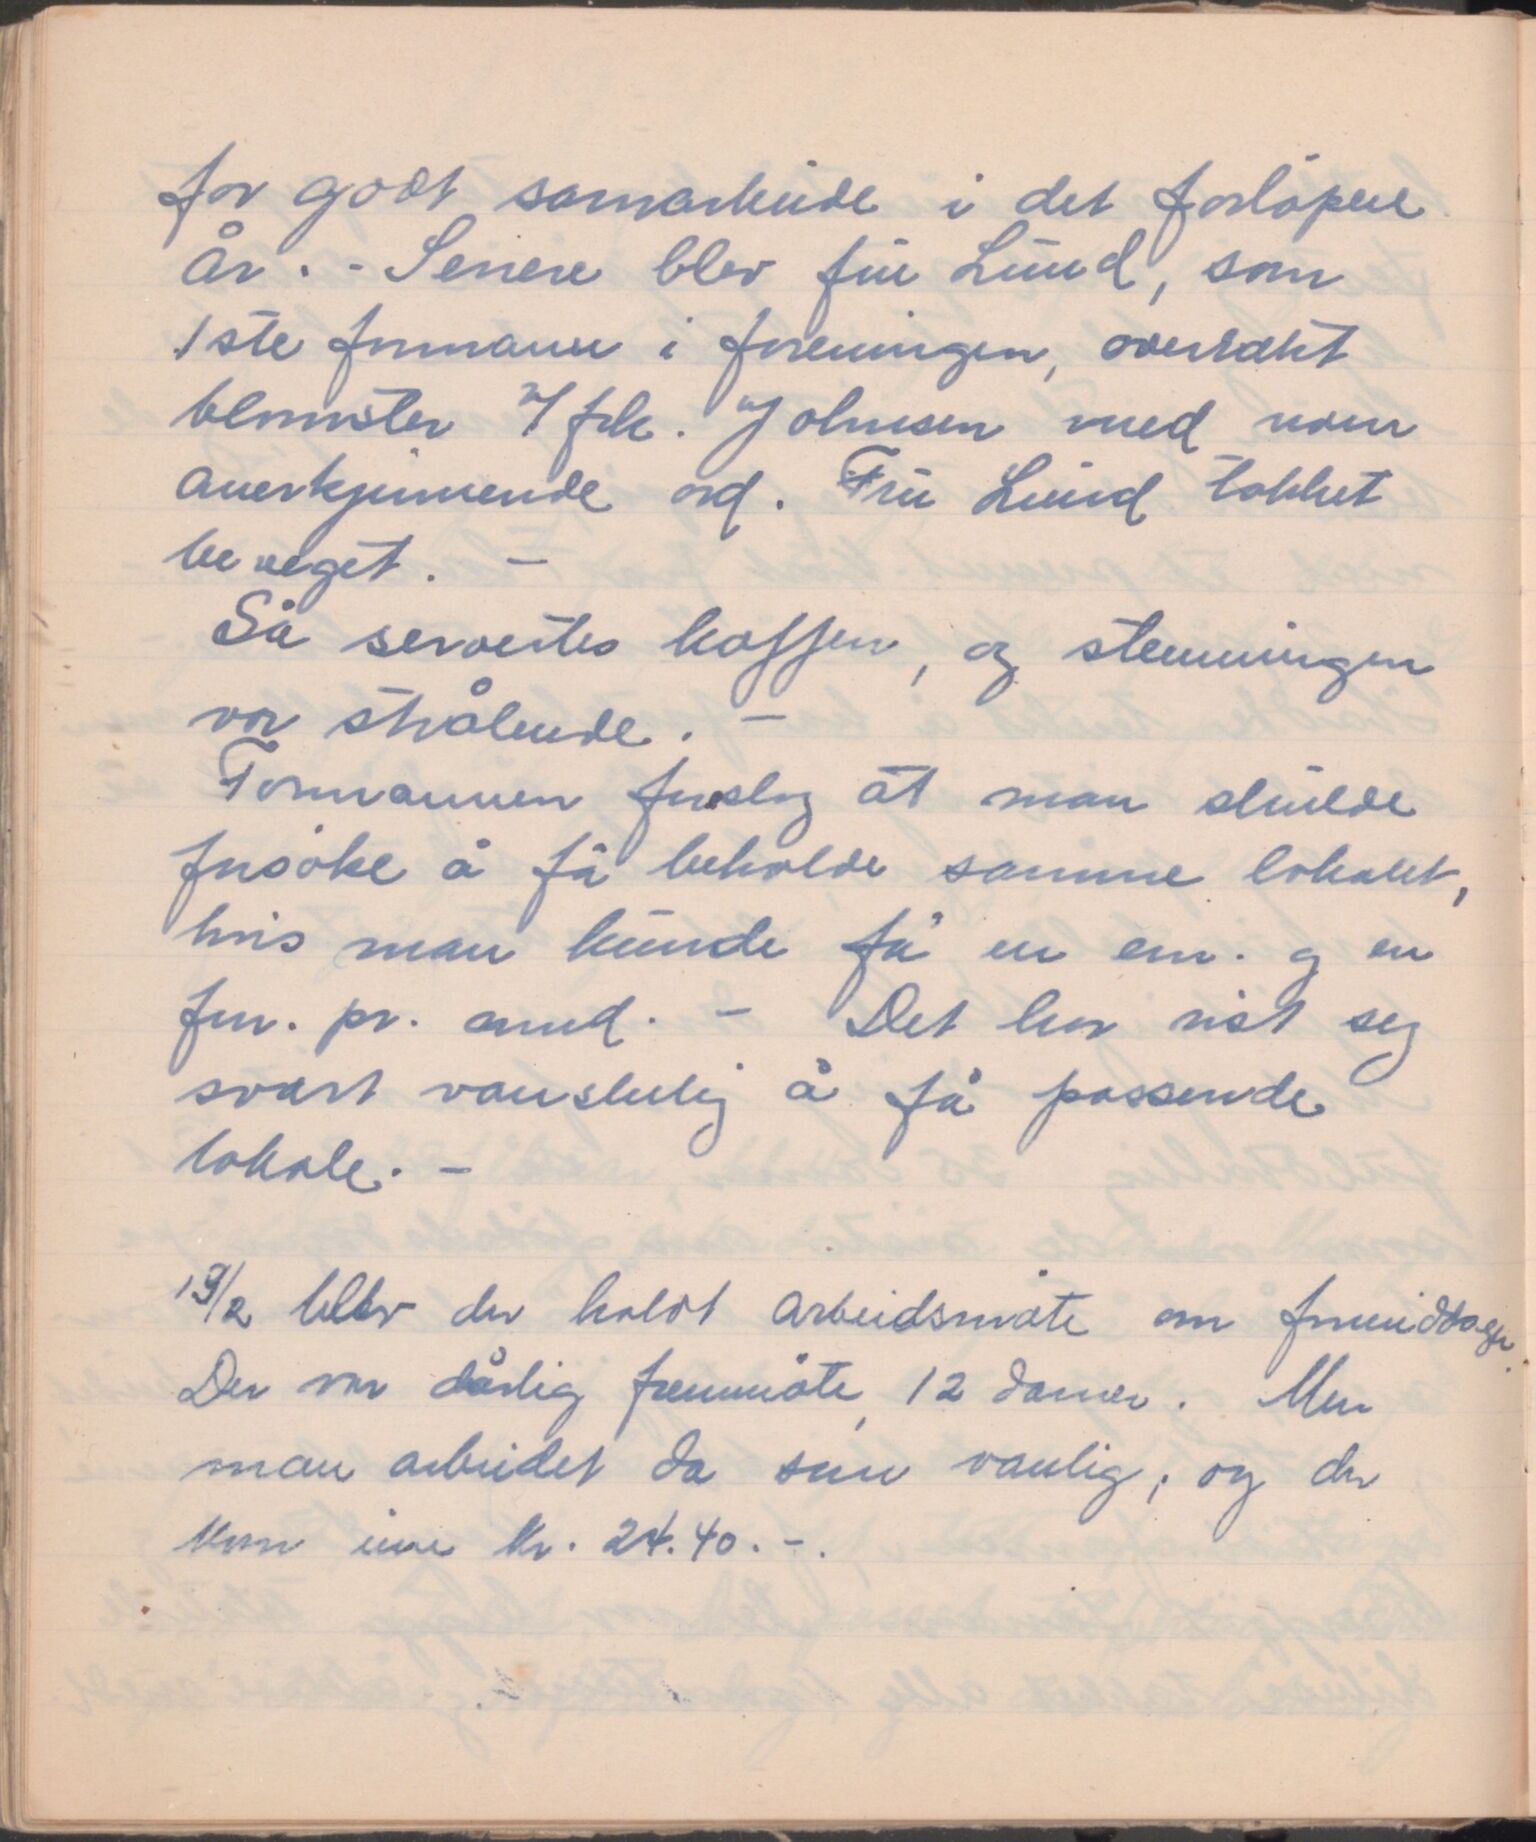 for godt samarbeide i det forløpne
År. - Senere blev fru Lund, som
1ste formann i foreningen, overrakt
blomster v/ frk. Johnsen med noen
anerkjennende ord. Fru Lund takket
beveget. -
Så servertes kaffen, og stemningen
var strålende. -
Formannen foreslog at man skulde
forsøke å få beholde samme lokalet,
hvis man kunde få en em. og en
fm. pr. mnd. - Det har vist seg
svært vanskelig å få passende
lokale. -
19/2 blev der holdt arbeidsmøte om formiddagen.
Der var dårlig fremmøte, 12 damer. Men
man arbeidet da som vanlig, og der
kom inn kr. 24.40. -.